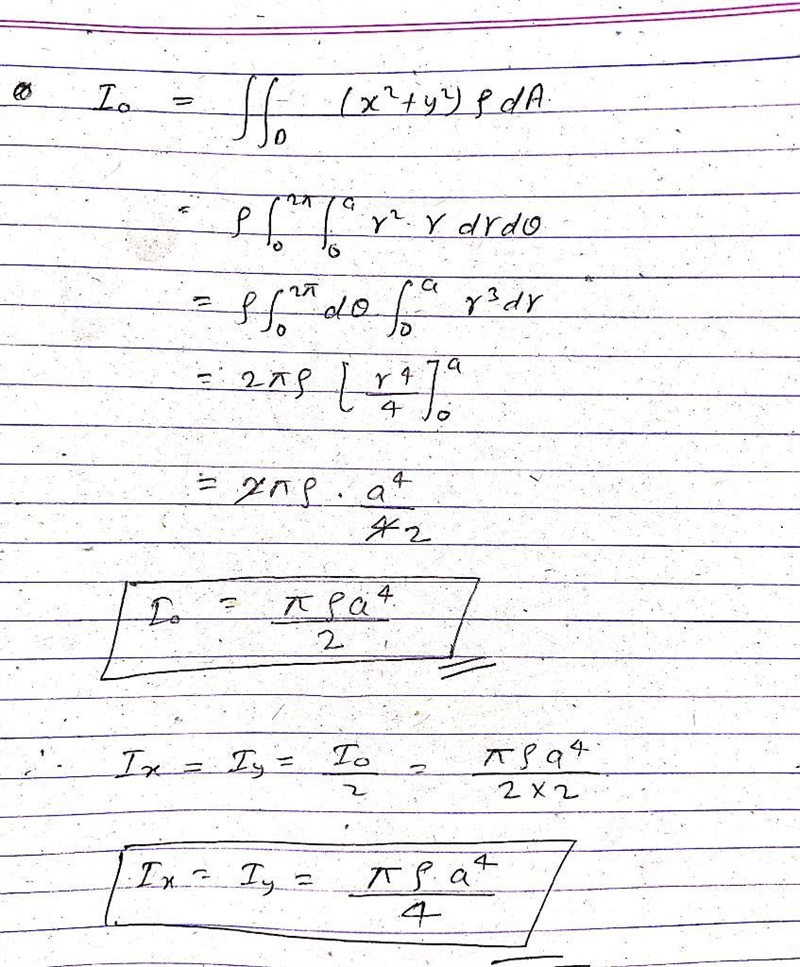 I₀ = ∬_D (x²+y²) ρ dA.
= ρ ∫₀^{2π} ∫₀^a r² · r dr dθ
= ρ ∫₀^{2π} dθ ∫₀^a r³ dr
= 2πρ [r⁴/4]₀^a
= 2̸πρ · a⁴/4̸ 2
I₀ = πρa⁴/2
∴ Iₓ = I_y = I₀/2 = πρa⁴/2×2
Iₓ = I_y = πρ a⁴/4